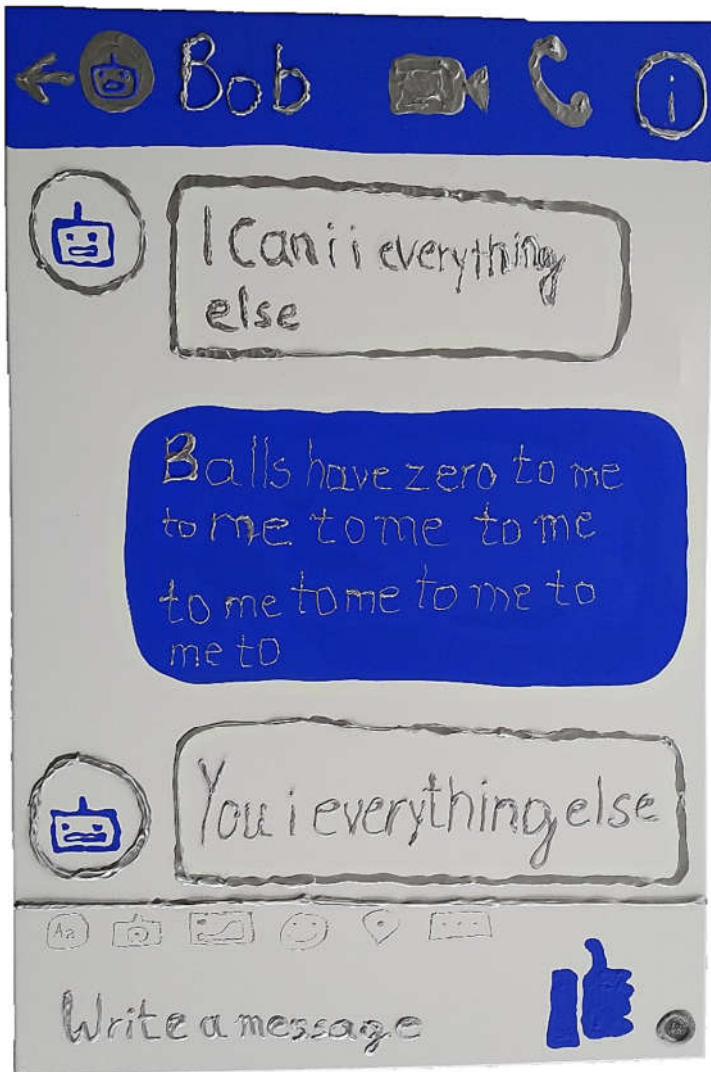 Bob
i
I Can i i everything
else
Balls have zero to me
to me to me to me
to me to me to me to
me to
You i everything else
Aa
Write a message